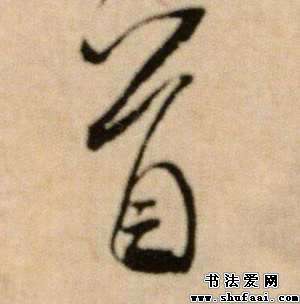 首
书法爱网
www.shufaai.com